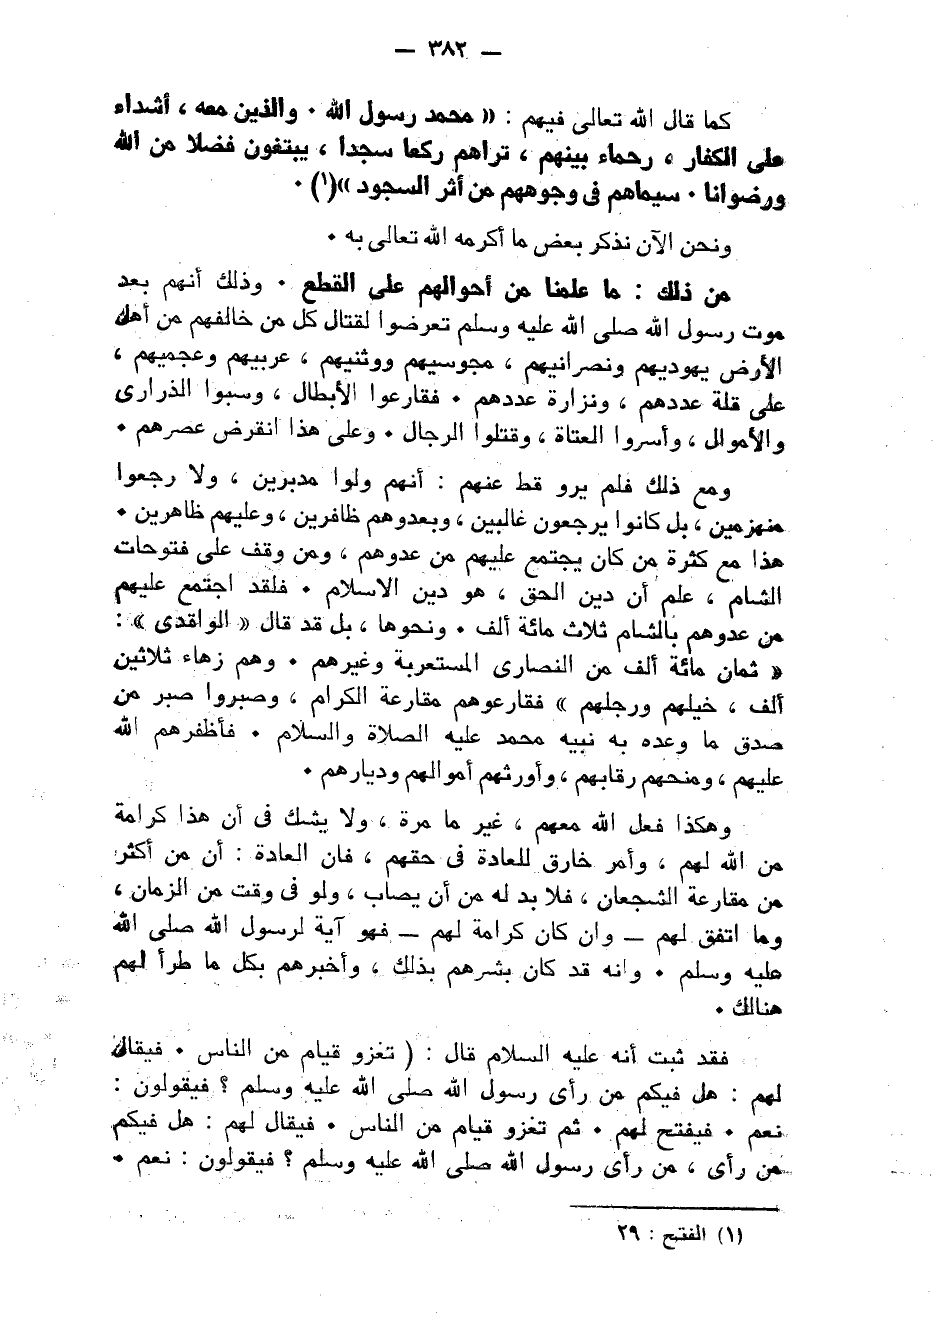 — ٣٨٢ —
كما قال الله تعالى فيهم : « محمد رسول الله ٠ والذين معه ، أشداء
على الكفار ، رحماء بينهم ، تراهم ركعا سجدا ، يبتغون فضلا من الله
ورضوانا ٠ سيماهم فى وجوههم من أثر السجود »(١) ٠
ونحن الآن نذكر بعض ما أكرمه الله تعالى به ٠
من ذلك : ما علمنا من أحوالهم على القطع ٠ وذلك أنهم بعد
موت رسول الله صلى الله عليه وسلم تعرضوا لقتال كل من خالفهم من أهل
الأرض يهوديهم ونصرانيهم ، مجوسيهم ووثنيهم ، عربيهم وعجميهم ،
على قلة عددهم ، ونزارة عددهم ٠ فقارعوا الأبطال ، وسبوا الذرارى
والأموال ، وأسروا العتاة ، وقتلوا الرجال ٠ وعلى هذا انقرض عصرهم ٠
ومع ذلك فلم يرو قط عنهم : أنهم ولوا مدبرين ، ولا رجعوا
منهزمين ، بل كانوا يرجعون غالبين ، وبعدوهم ظافرين ، وعليهم ظاهرين ٠
هذا مع كثرة من كان يجتمع عليهم من عدوهم ، ومن وقف على فتوحات
الشام ، علم أن دين الحق ، هو دين الاسلام ٠ فلقد اجتمع عليهم
من عدوهم بالشام ثلاث مائة ألف ٠ ونحوها ، بل قد قال « الواقدى » :
« ثمان مائة ألف من النصارى المستعربة وغيرهم ٠ وهم زهاء ثلاثين
ألف ، خيلهم ورجلهم » فقارعوهم مقارعة الكرام ، وصبروا صبر من
صدق ما وعده به نبيه محمد عليه الصلاة والسلام ٠ فأظفرهم الله
عليهم ، ومنحهم رقابهم ، وأورثهم أموالهم وديارهم ٠
وهكذا فعل الله معهم ، غير ما مرة ، ولا يشك فى أن هذا كرامة
من الله لهم ، وأمر خارق للعادة فى حقهم ، فان العادة : أن من أكثر
من مقارعة الشجعان ، فلا بد له من أن يصاب ، ولو فى وقت من الزمان ،
وما اتفق لهم — وان كان كرامة لهم — فهو آية لرسول الله صلى الله
عليه وسلم ٠ وانه قد كان بشرهم بذلك ، وأخبرهم بكل ما طرأ لهم
هنالك ٠
فقد ثبت أنه عليه السلام قال : ( تغزو قيام من الناس ٠ فيقال
لهم : هل فيكم من رأى رسول الله صلى الله عليه وسلم ؟ فيقولون :
نعم ٠ فيفتح لهم ٠ ثم تغزو قيام من الناس ٠ فيقال لهم : هل فيكم
من رأى ، من رأى رسول الله صلى الله عليه وسلم ؟ فيقولون : نعم ٠
(١) الفتح : ٢٩